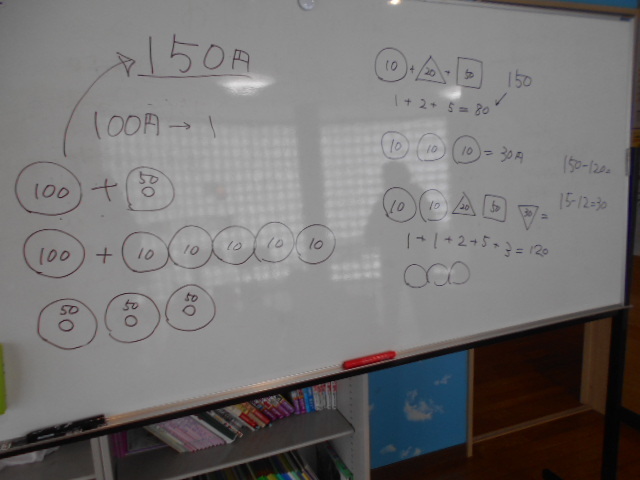 150円
100円→1
100 + 50
100 + 10 10 10 10 10
50 50 50
10 + 20 + 50
150
1 + 2 + 5 = 80
10 10 10 = 30円
150-120=
15-12=30
10 10 20 50 30 =
1 + 1 + 2 + 5 + 3 = 120